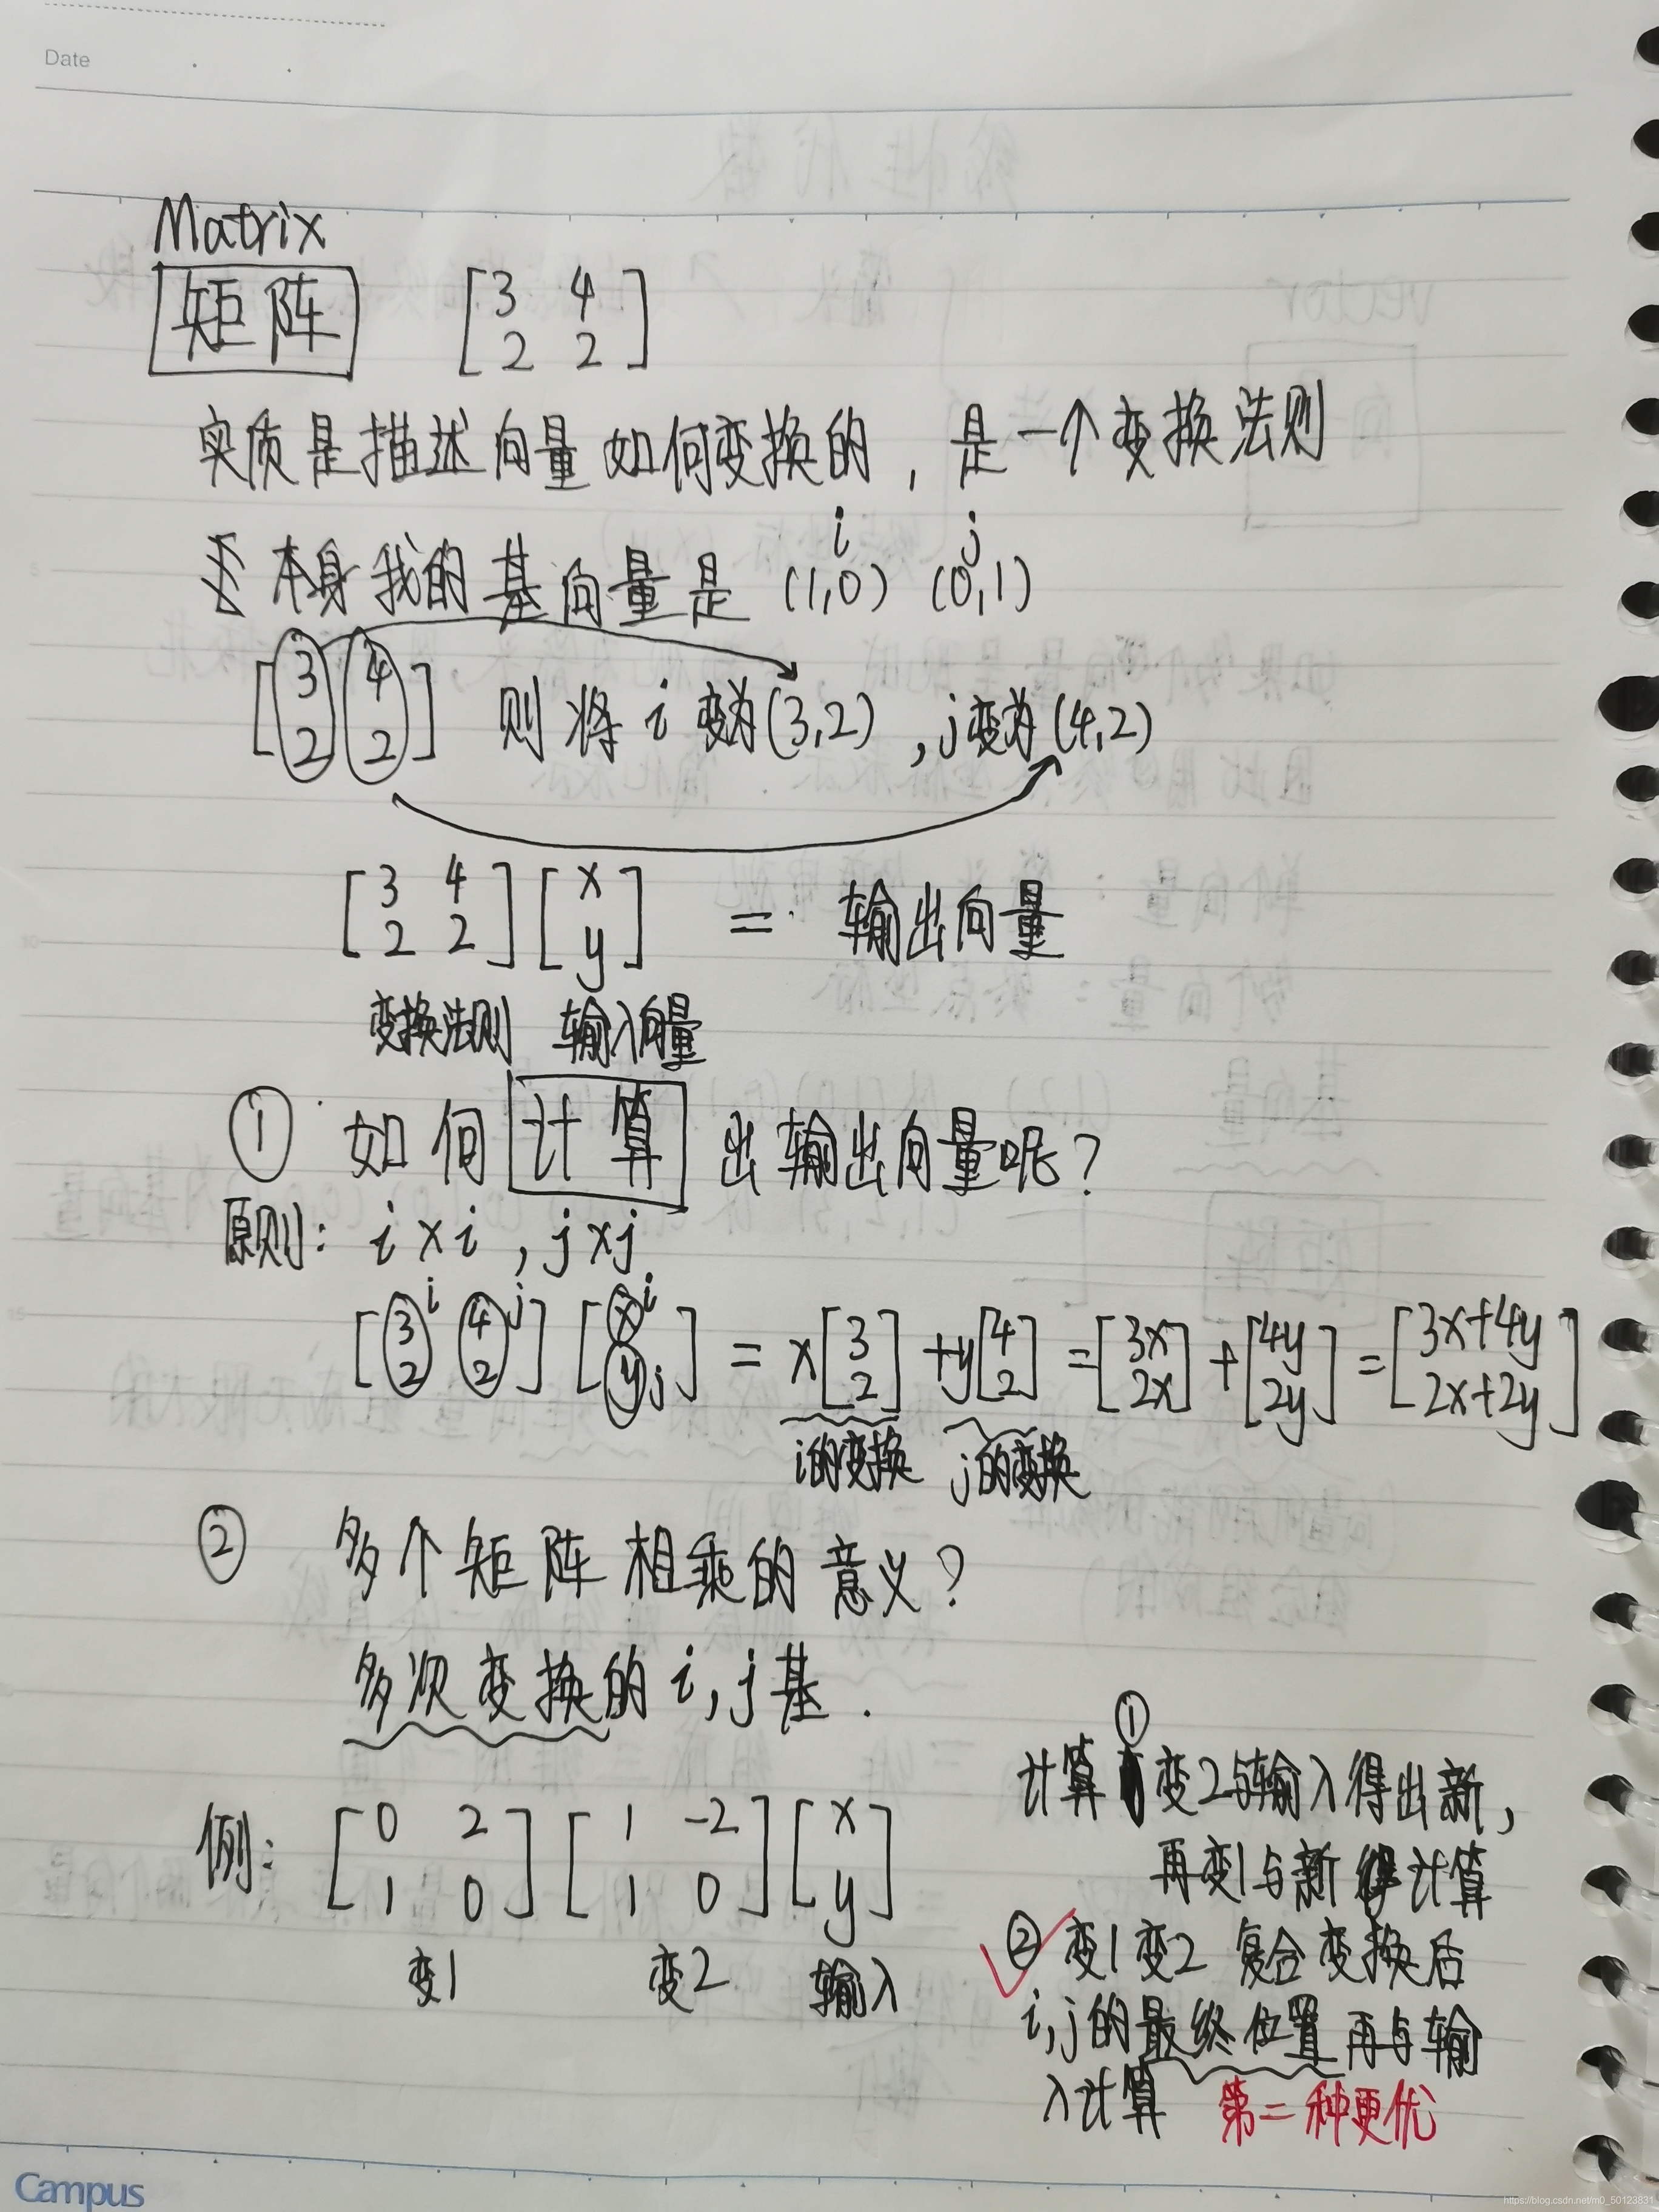 Date
Matrix
矩阵 [3 4
2 2]
实质是描述向量如何变换的，是一个变换法则
i j
本身我的基向量是 (1,0) (0,1)
[3 4
2 2] 则将 i 变为(3,2)，j变为(4,2)
[3 4
2 2] [x
y] = 输出向量
变换法则 输入向量
① 如何计算出输出向量呢？
原则：i×i，j×j
[3 i 4 j
2 2] [x i
y j] = x[3
2] + y[4
2] = [3x
2x] + [4y
2y] = [3x+4y
2x+2y]
i的变换 j的变换
② 多个矩阵相乘的意义？
多次变换的 i,j基.
例：[0 2
1 0] [1 -2
1 0] [x
y]
变1 变2 输入
①
计算 变2与输入得出新，
再变1与新 计算
② 变1变2 复合变换后
i,j的最终位置再与输
入计算 第二种更优
Campus
https://blog.csdn.net/m0_50123831